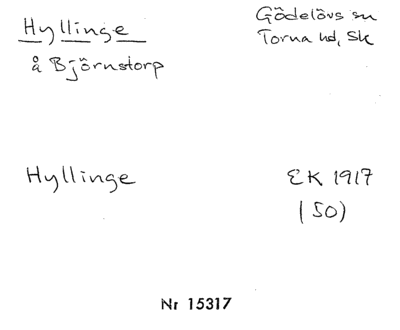 Hyllinge
å Björnstorp
Gödelövs sn
Torna hd, Sk
Hyllinge
EK 1917
(50)
Nr 15317